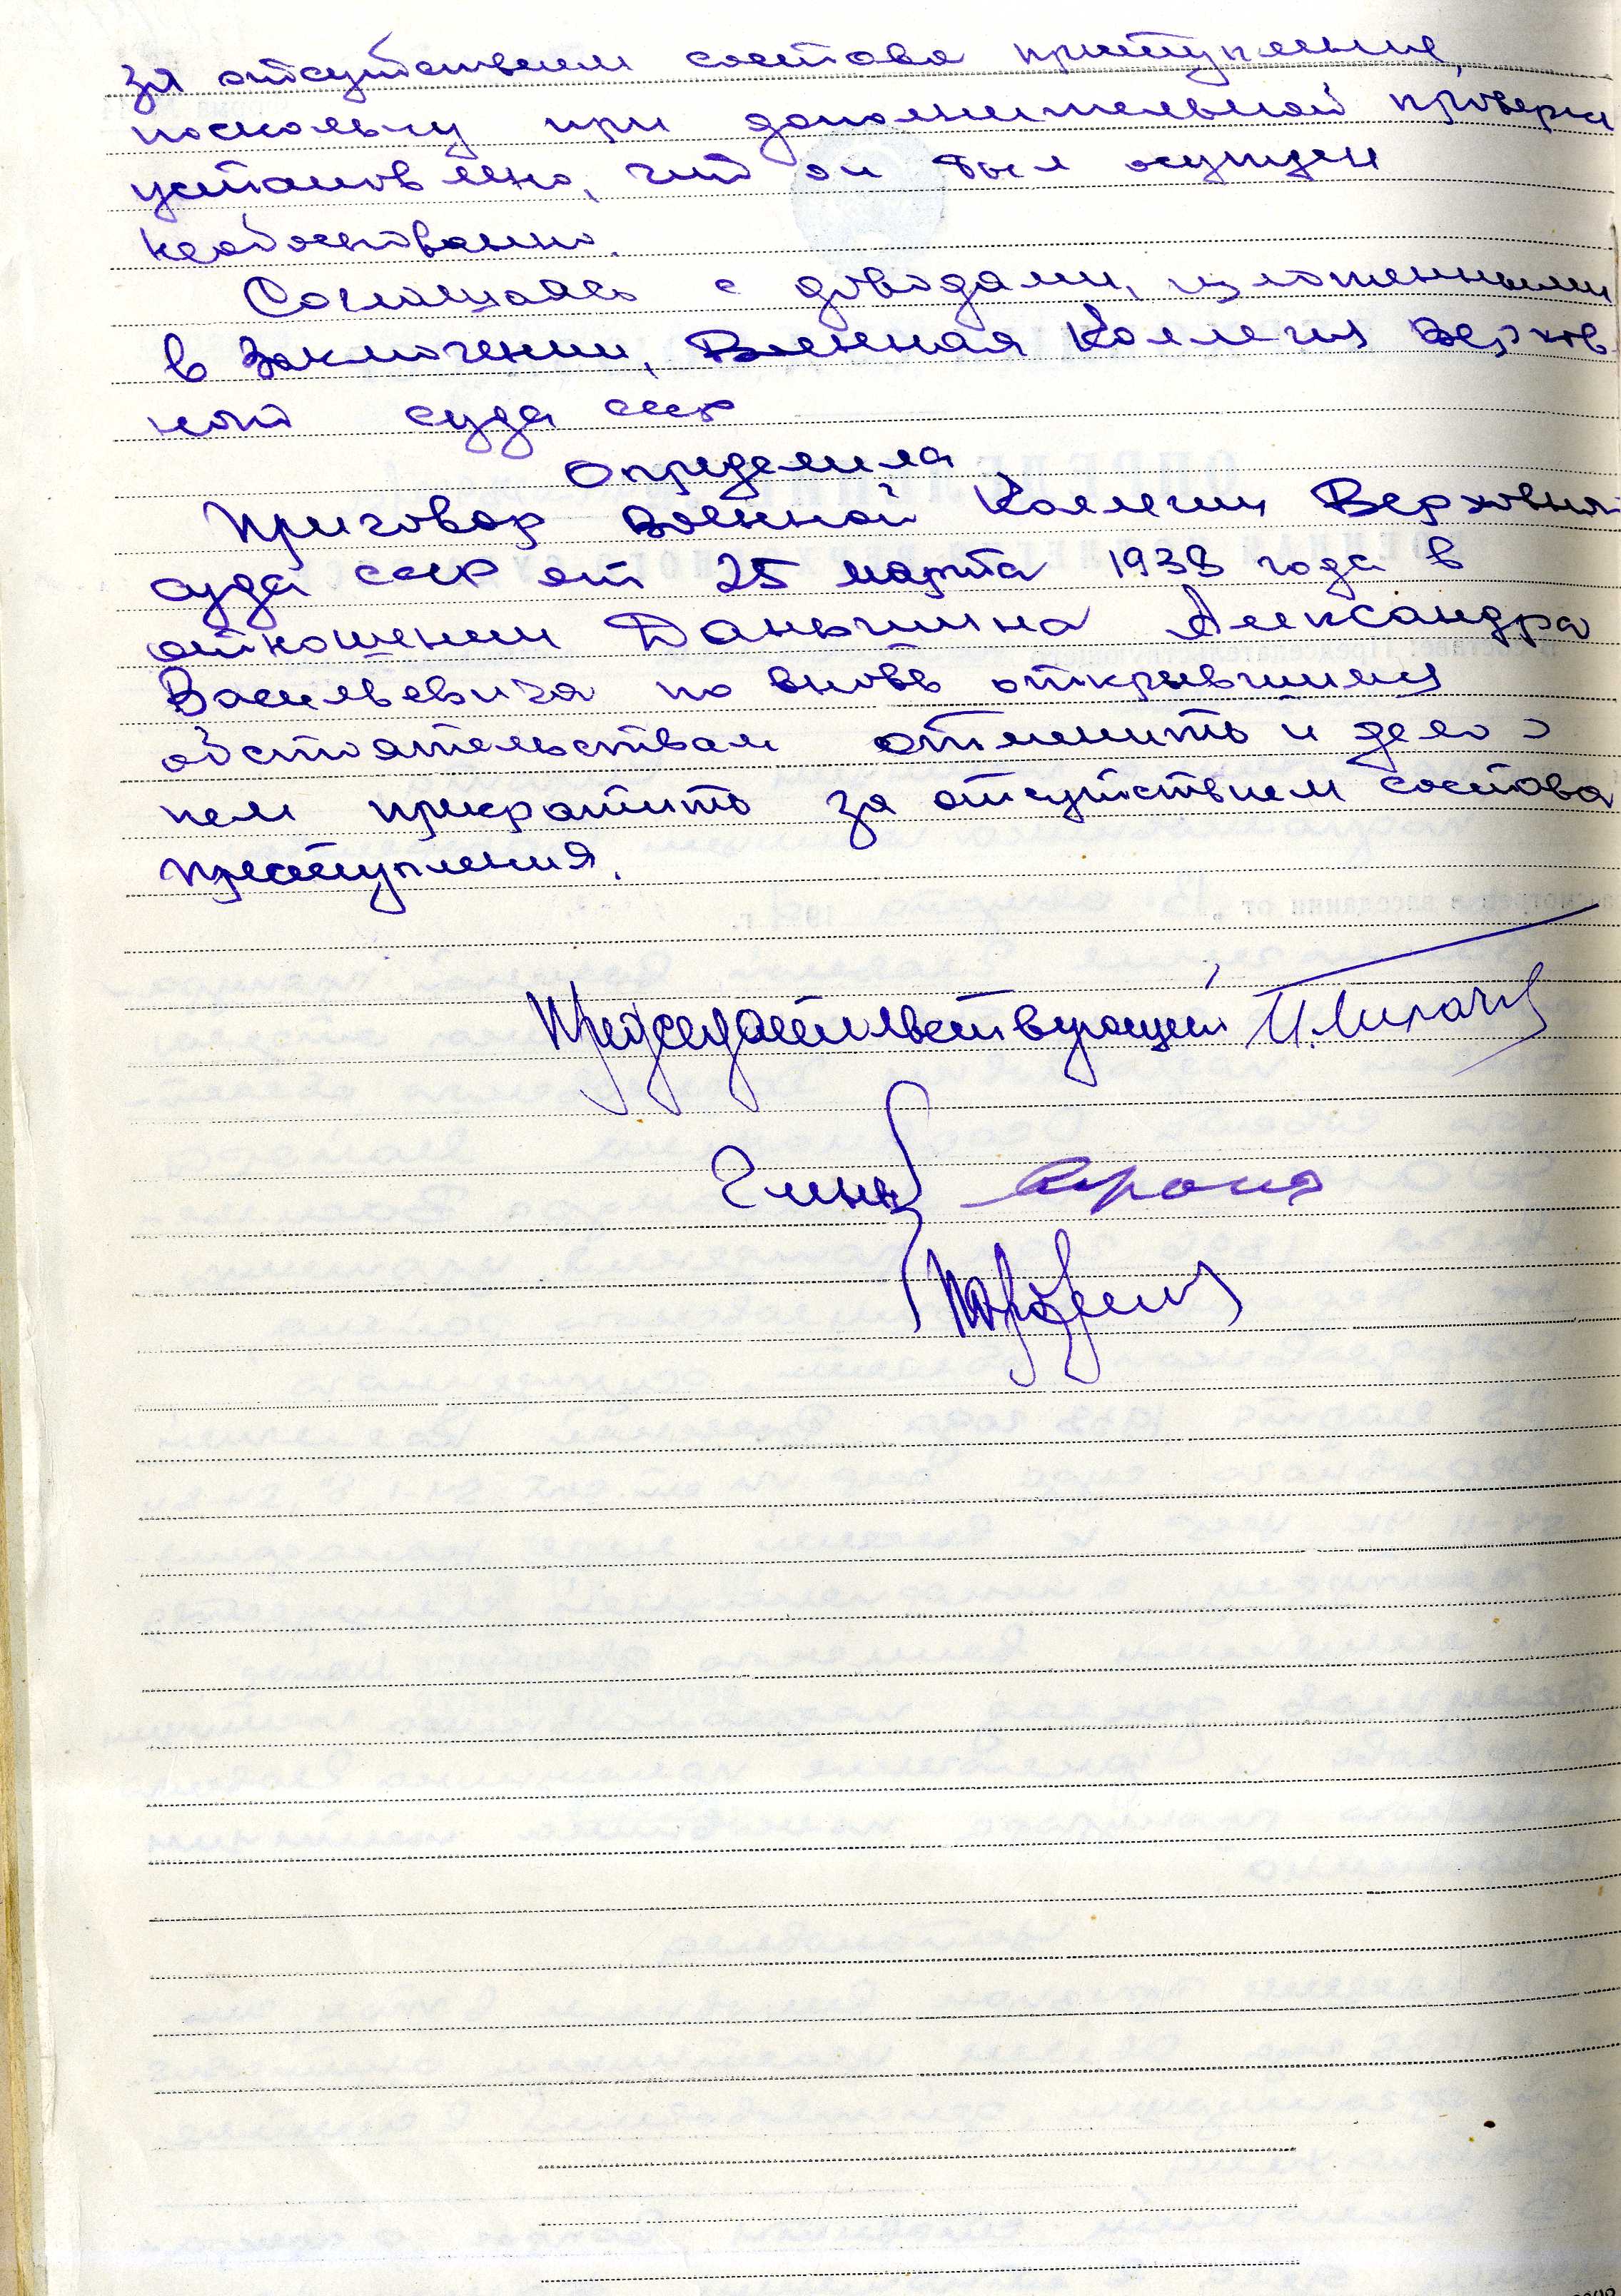 за отсутствием состава преступления,
поскольку при дополнительной проверке
установлено, что он был осужден
необоснованно.
Соглашаясь с доводами, изложенными
в заключении, Военная Коллегия Верхов
ного суда ссср
определила
Приговор Военной Коллегии Верховного
суда ссср от 25 марта 1938 года в
отношении Даньшина Александра
Васильевича по вновь открывшимся
обстоятельствам отменить и дело о
нем прекратить за отсутствием состава
преступления.
Председательствующий
Члены